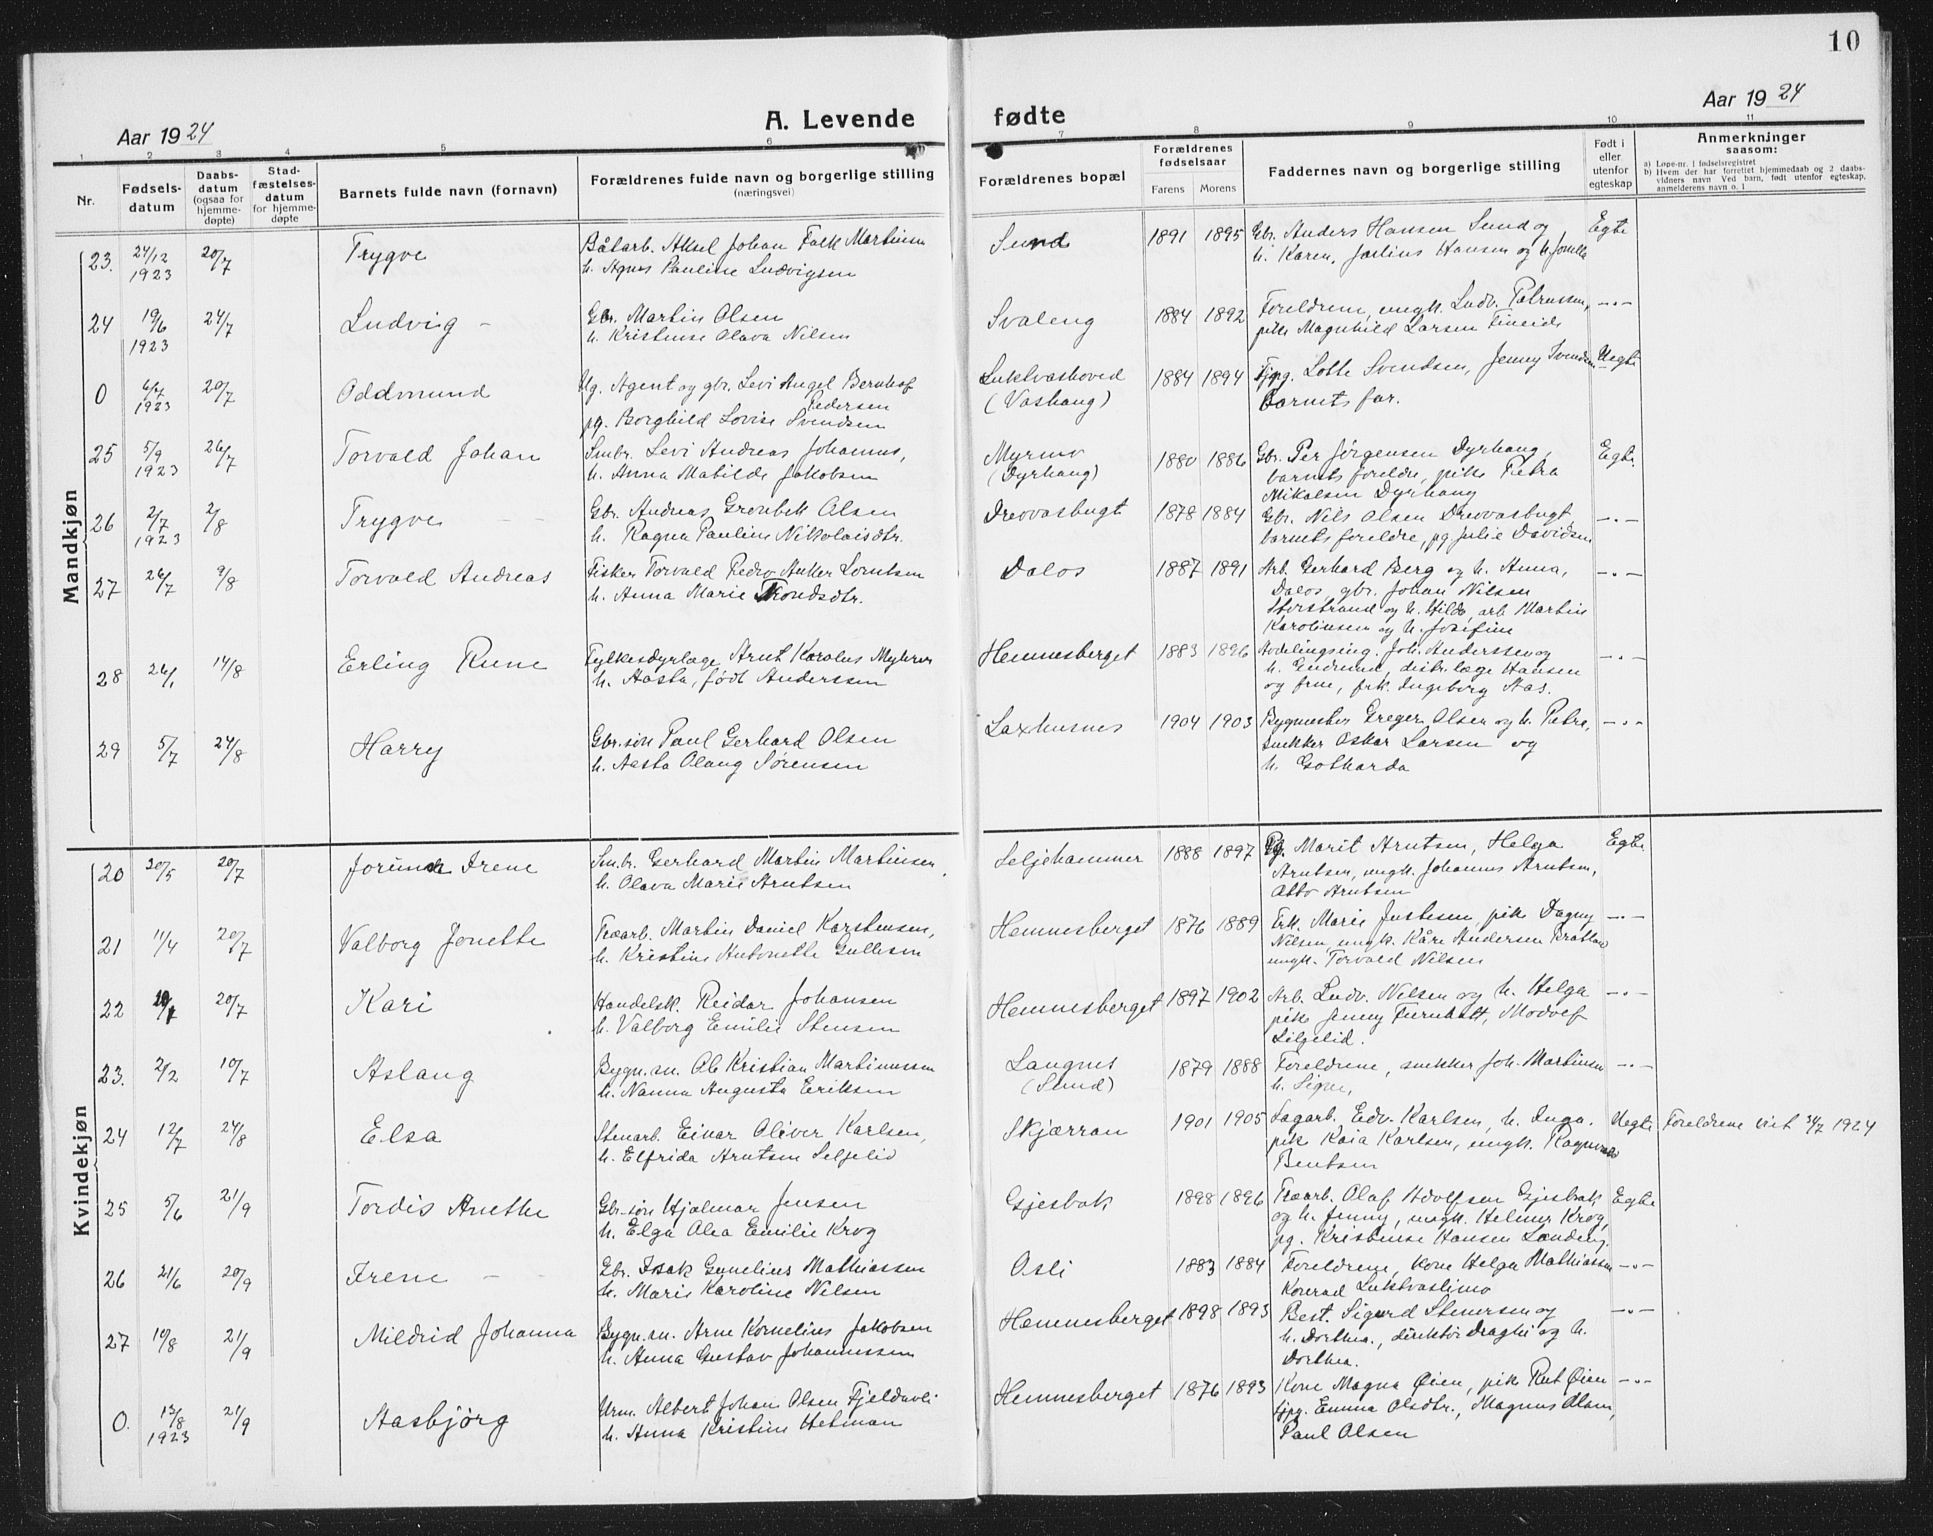 10
Aar 1924
A. Levende fødte
Aar 1924
1 2 3 4 5 6 7 8 9 10 11
Nr.
Fødsels-
datum
Daabs-
datum
(ogsaa for
hjemme-
døpte)
Stad-
fæstelses-
datum
for hjemme-
døpte
Barnets fulde navn (fornavn)
Forældrenes fulde navn og borgerlige stilling
(næringsvei)
Forældrenes bopæl
Forældrenes
fødselsaar
Farens Morens
Faddernes navn og borgerlige stilling
Født i
eller
utenfor
egteskap
Anmerkninger
saasom:
a) Løpe-nr. i fødselsregistret
b) Hvem der har forrettet hjemmedaab og 2 daabs-
vidners navn Ved barn, født utenfor egteskap,
anmelderens navn o. l
Mandkjøn
23. 24/12 1923 20/7 Trygve
Båtarb. Aksel Johan Falk Martinsen
h. Agnes Pauline Ludvigsen
Sund 1891 1895
Gbr. Anders Hansen Sund og
h. Karen, Julius Hansen og h.
Egte
24 19/6 1923 24/7 Ludvig -
Gbr. Martin Olsen
h. Kristense Olava Nilsen
Svaleng 1884 1892
Foreldrene, ungk. Ludv. Petrussen,
pike Magnhild Larsen Fineide
-"-
0 6/7 1923 20/7 Oddmund
Ug. Agent og gbr. Levi Angel Bernhof
Pedersen
pg. Borghild Lovise Svendsen
Luktvashoved
(Vashaug)
1884 1894
Fjpg. Lotte Svendsen, Jenny Svendsen
Barnets far.
Uegte
25 5/9 1923 26/7 Torvald Johan
Smbr. Levi Andreas Johannes,
h. Anna Matilde Jakobsen
Myrmo
(Dyrhaug)
1880 1886
Gbr. Per Jørgensen Dyrhaug,
barnets foreldre, pike Petra
Mikalsen Dyrhaug
Egte
26 2/7 1923 2/8 Trygve - -
Gbr. Andreas Grønbek Olsen
h. Ragna Pauline Nikolaisdtr.
Drevvasbugt 1878 1884
Gbr. Nils Olsen Drevvasbugt,
barnets foreldre, pg Julie Davidsen
-"-
27 26/7 9/8 Torvald Andreas
Fisker Torvald Pedro Anker Lorntsen
h. Anna Marie Trondsdtr.
Dalos 1887 1891
Arb. Gerhard Berg og h. Anna,
Dalos, gbr. Johan Nilsen
Storstrand og h. Hilda, arb. Martin
Karolinsen og h. Josefine
-"-
28 26/1 14/8 Erling Rune
Fylkesdyrlæge Arnt Karolus Myhrer
h. Aasta, født Anderssen
Hemnesberget 1883 1896
Avdelingsing. Joh. Anderssen og
h. Gudrun, distr.læge Hansen
og frue, frk. Ingeborg Aas.
-"-
29 5/7 24/8 Harry
Gbr.søn Paul Gerhard Olsen
h. Aasta Olaug Sørensen
Laxhusnes 1904 1903
Bygmester Greger Olsen og h. Petra,
snekker Oskar Larsen og
h. Gotharda
-"-
Kvindekjøn
20 30/5 20/7 Jorunn Irene
Smbr. Gerhard Martin Martinsen
h. Olava Marie Arntsen
Seljehammer 1888 1897
Pg. Marit Arntsen, Helga
Arntsen, ungk. Johannes Arntsen,
Otto Arntsen
Egte
21 11/4 20/7 Valborg Jonette
Træarb. Martin Daniel Karstensen,
h. Kristine Antonette Gullesen
Hemnesberget 1876 1889
Frk. Marie Justesen, pike Dagny
Nilsen, ungk. Kåre Andersen Bratland
ungk. Torvald Nilsen
-"-
22 20/7 Kari
Handelsk. Reidar Johansen
h. Valborg Emilie Stensen
Hemnesberget 1897 1902
Arb. Ludv. Nilsen og h. Helga
pike Jenny Furuhatt, Modolf
Liljelid.
-"-
23. 2/2 10/7 Aslaug
Bygn.sn. Ole Kristian Martinussen
h. Nanna Augusta Eriksen
Langnes
(Sund)
1879 1888
Foreldrene, snekker Joh. Martinsen
h. Signe,
-"-
24 12/7 24/8 Elsa
Stenarb. Einar Oliver Karlsen,
h. Elfrida Arntsen Seljelid
Skjærran 1901 1905
Sagarb. Edv. Karlsen, h. Inga.
pike Kaia Karlsen, ungk. Ragnvald
Bentsen
Uegte
Foreldrene viet 24/7 1924
25 5/6 21/9 Tordis Anethe
Gbr.søn Hjalmar Jensen
h. Elga Alea Emilie Krog
Gjesbak 1898 1896
Træarb. Olaf Adolfsen Gjesbak
og h. Jenny, ungk. Helmer Krog,
pg. Kristense Hansen Landeng.
Egte
26 21/6 20/9 Irene -
Gbr. Isak Gunelius Mathiassen
h. Marie Karoline Nilsen
Osli 1883 1884
Foreldrene, kone Helga Mathiassen
Konrad Luktvaslimo
-"-
27 10/8 21/9 Mildrid Johanna
Bygn.sn. Arne Kornelius Jakobsen
h. Anna Gustav Johannessen
Hemnesberget 1898 1893
Best. Sigurd Stenersen og
h. Dorthea., direktør Draghi og h.
Dorthea.
-"-
0. 13/8 1923 21/9 Aasbjørg
Urm. Albert Johan Olsen Fjeldavli
h. Anna Kristine Hetman
Hemnesberget 1876 1893
Kone Magna Øien, pike Rut Øien
fjpg. Emma Olsdtr., Magnus Olsen,
Paul Olsen
-"-